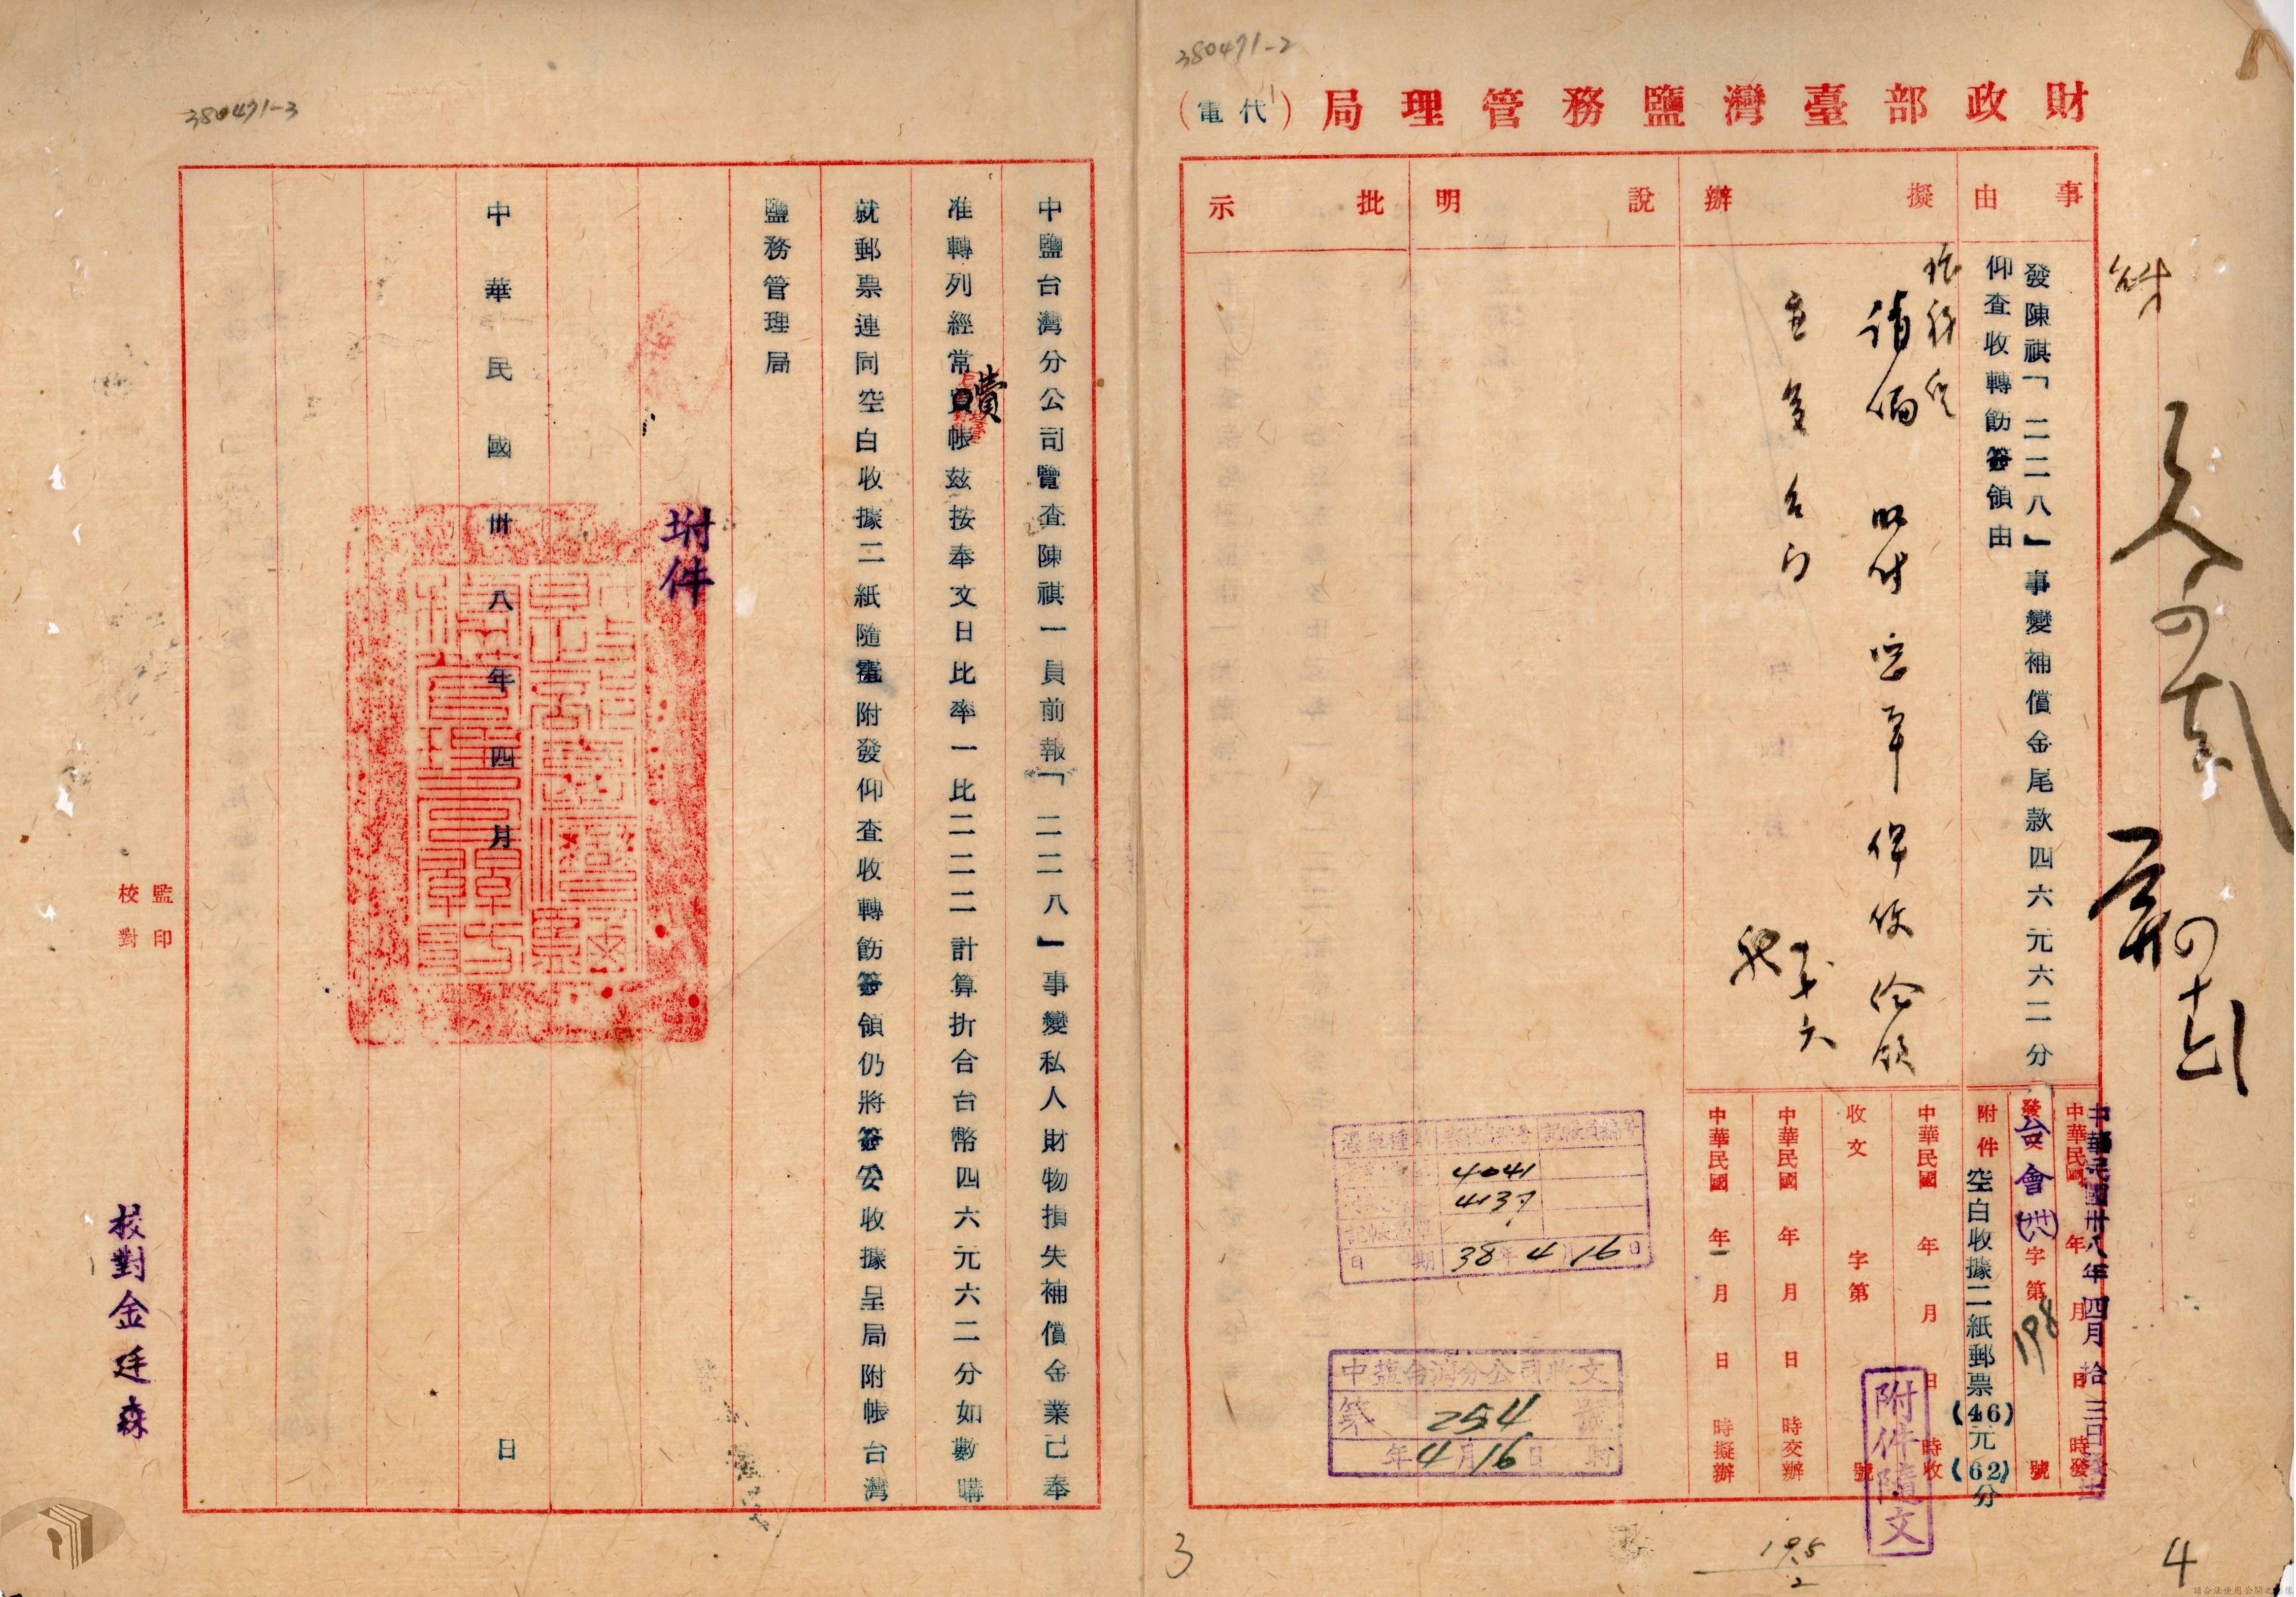 380471-2
財政部臺灣鹽務管理局(代電)
事由
擬辦
說明
批示
發陳祺「二二八」事變補償金尾款四六元六二分
仰查收轉飭簽領由
中華民國卅八年四月拾三日發出
中華民國 年 月 日 時發
發文台會(卅八)字第198號
附件 空白收據二紙郵票(46)元(62)分
中華民國 年 月 日 時收
收文 字第 號
中華民國 年 月 日 時交辦
中華民國 年 月 日 時擬辦
附件隨文
4041
4137
日期 38年4月16日
中鹽台灣分公司收文
第254號
年4月16日 時
195
2
3
4
380471-3
中鹽台灣分公司覽查陳祺一員前報「二二八」事變私人財物損失補償金業已奉
准轉列經常費帳茲按奉文日比率一比二二二計算折合台幣四六元六二分如數購
就郵票連同空白收據二紙隨電附發仰查收轉飭簽領仍將簽妥收據呈局附帳台灣
鹽務管理局
附件
中華民國卅八年四月 日
監印
校對
校對金廷森
請合法使用公開之影像